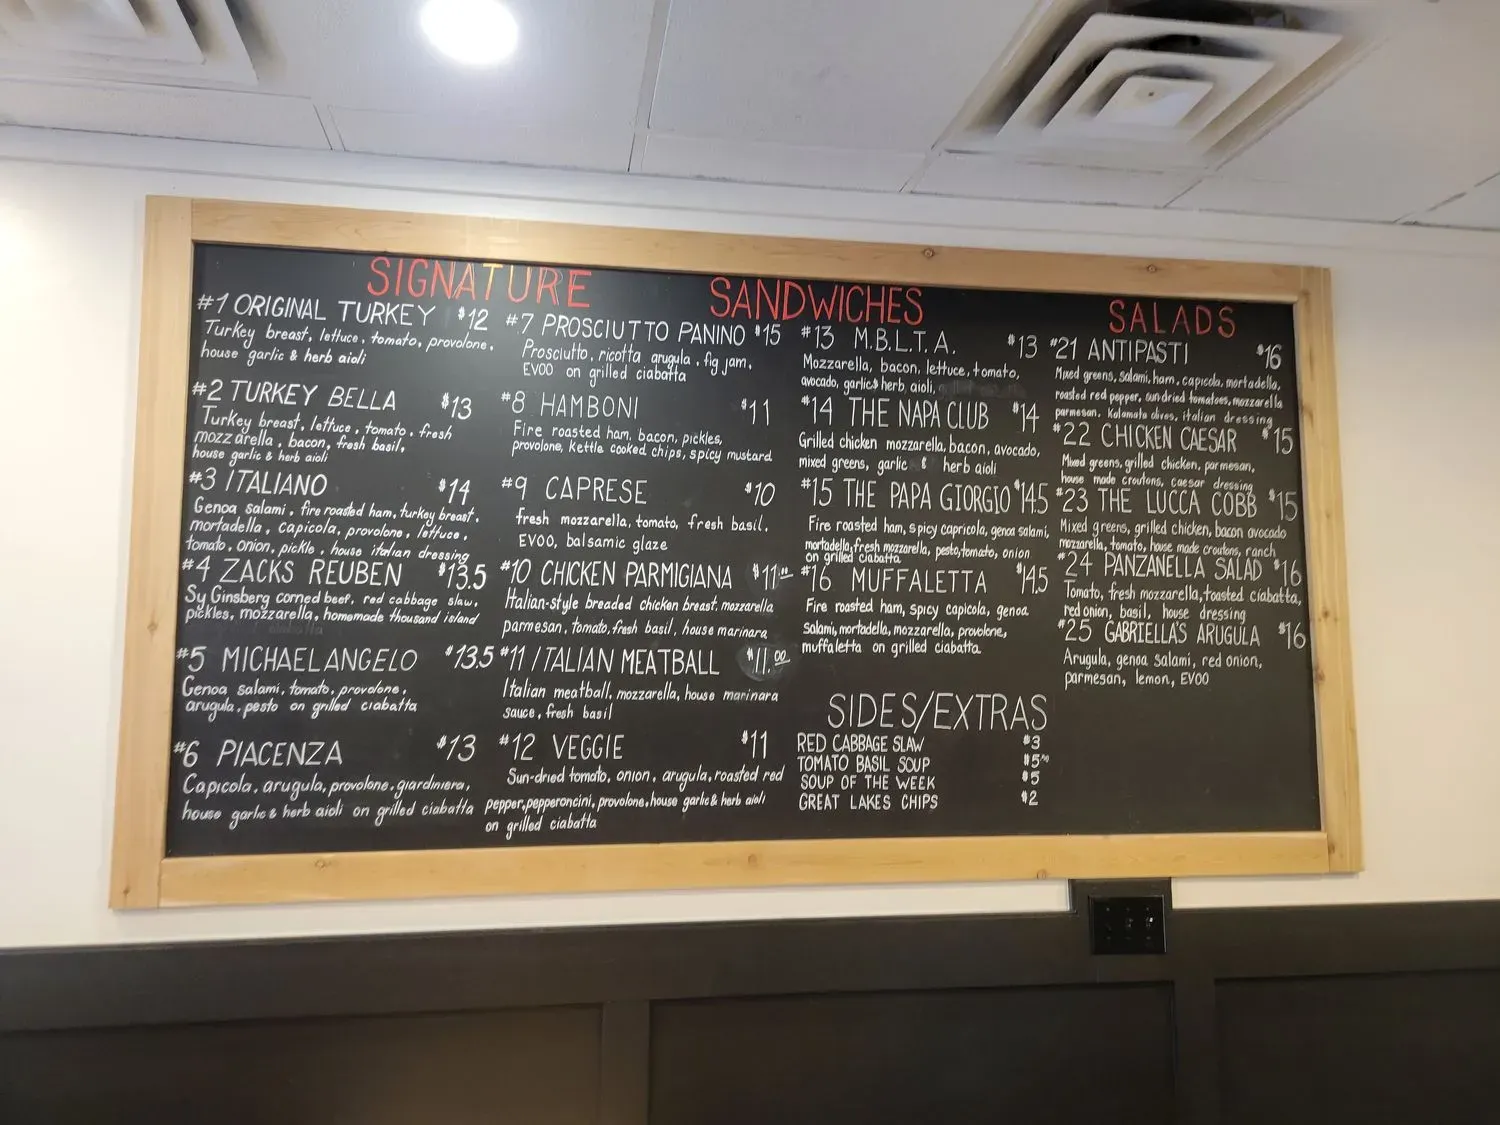 SIGNATURE SANDWICHES
#1 ORIGINAL TURKEY $12
Turkey breast, lettuce, tomato, provolone,
house garlic & herb aioli
#2 TURKEY BELLA $13
Turkey breast, lettuce, tomato, fresh
mozzarella, bacon, fresh basil,
house garlic & herb aioli
#3 ITALIANO $14
Genoa salami, fire roasted ham, turkey breast,
mortadella, capicola, provolone, lettuce,
tomato, onion, pickle, house italian dressing
#4 ZACKS REUBEN $13.5
Sy Ginsberg corned beef, red cabbage slaw,
pickles, mozzarella, homemade thousand island
#5 MICHAELANGELO $13.5
Genoa salami, tomato, provolone,
arugula, pesto on grilled ciabatta
#6 PIACENZA $13
Capicola, arugula, provolone, giardiniera,
house garlic & herb aioli on grilled ciabatta
#7 PROSCIUTTO PANINO $15
Prosciutto, ricotta arugula, fig jam,
EVOO on grilled ciabatta
#8 HAMBONI $11
Fire roasted ham, bacon, pickles,
provolone, kettle cooked chips, spicy mustard
#9 CAPRESE $10
fresh mozzarella, tomato, fresh basil,
EVOO, balsamic glaze
#10 CHICKEN PARMIGIANA $11.00
Italian-style breaded chicken breast, mozzarella
parmesan, tomato, fresh basil, house marinara
#11 ITALIAN MEATBALL $11.00
Italian meatball, mozzarella, house marinara
sauce, fresh basil
#12 VEGGIE $11
Sun-dried tomato, onion, arugula, roasted red
pepper, pepperoncini, provolone, house garlic & herb aioli
on grilled ciabatta
#13 M.B.L.T.A. $13
Mozzarella, bacon, lettuce, tomato,
avocado, garlic & herb aioli,
#14 THE NAPA CLUB $14
Grilled chicken mozzarella, bacon, avocado,
mixed greens, garlic & herb aioli
#15 THE PAPA GIORGIO $14.5
Fire roasted ham, spicy capricola, genoa salami,
mortadella, fresh mozzarella, pesto, tomato, onion
on grilled ciabatta
#16 MUFFALETTA $14.5
Fire roasted ham, spicy capicola, genoa
salami, mortadella, mozzarella, provolone,
muffaletta on grilled ciabatta
SIDES/EXTRAS
RED CABBAGE SLAW $3
TOMATO BASIL SOUP $5
SOUP OF THE WEEK $5
GREAT LAKES CHIPS $2
SALADS
#21 ANTIPASTI $16
Mixed greens, salami, ham, capicola, mortadella,
roasted red pepper, sun-dried tomatoes, mozzarella
parmesan, kalamata olives, italian dressing
#22 CHICKEN CAESAR $15
Mixed greens, grilled chicken, parmesan,
house made croutons, caesar dressing
#23 THE LUCCA COBB $15
Mixed greens, grilled chicken, bacon avocado
mozzarella, tomato, house made croutons, ranch
#24 PANZANELLA SALAD $16
Tomato, fresh mozzarella, toasted ciabatta,
red onion, basil, house dressing
#25 GABRIELLA'S ARUGULA $16
Arugula, genoa salami, red onion,
parmesan, lemon, EVOO